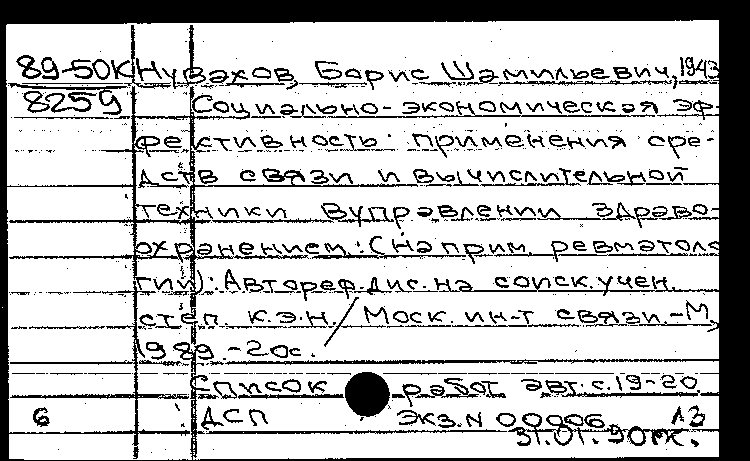 89-50К Нувахов, Борис Шамильевич, 1943
8259 Социально-экономическая эф-
фективность применения сре-
дств связи и вычислительной
техники в управлении здраво-
охранением: (На прим. ревматоло
гии): Автореф. дис. на соиск. учен.
степ. к.э.н. / Моск. ин-т связи. - М.,
1989. - 20с.
Список работ авт. с. 19-20
6 ДСП ЭКЗ. N 00006 ЛЗ
31.01.90